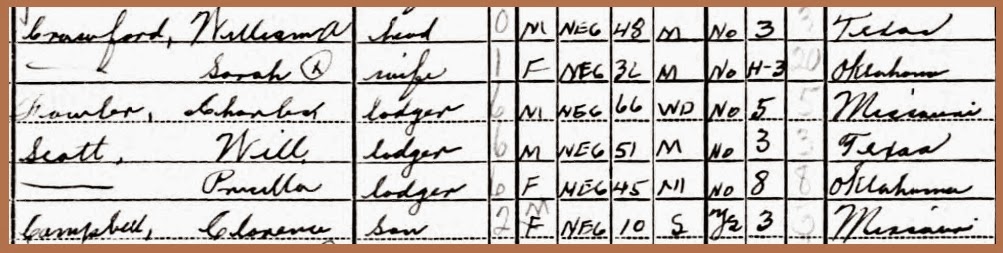 Crawford, William A head 0 M NEG 48 M No 3 3 Texas
— Sarah Ⓧ wife 1 F NEG 36 M No H-3 20 Oklahoma
Fowler, Charles lodger 6 M NEG 66 WD No 5 5 Missouri
Scott, Will lodger 6 M NEG 51 M No 3 3 Texas
— Pricilla lodger 6 F NEG 45 M No 8 8 Oklahoma
Campbell, Clarence son 2 M F NEG 10 S Yes 3 3 Missouri